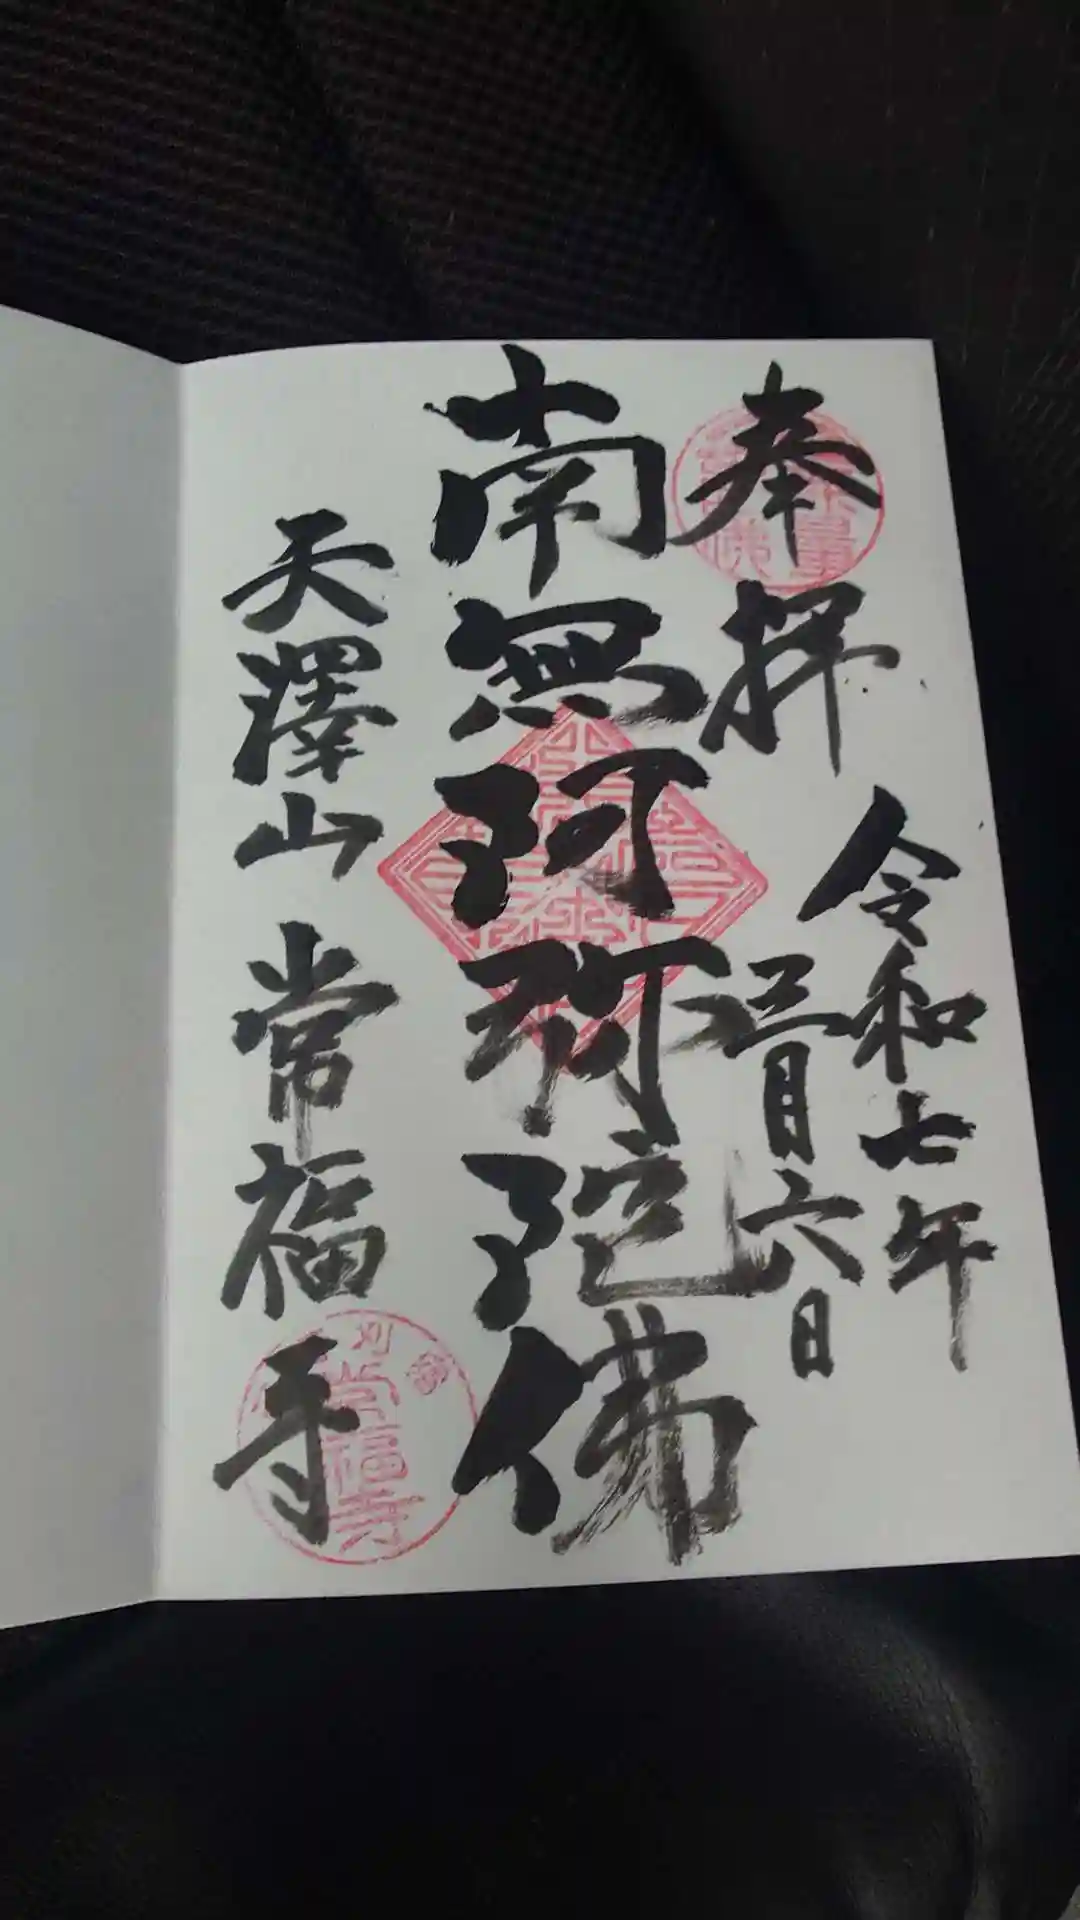 奉拝
令和七年
三月六日
南無阿弥陀佛
天澤山 常福寺
常福寺